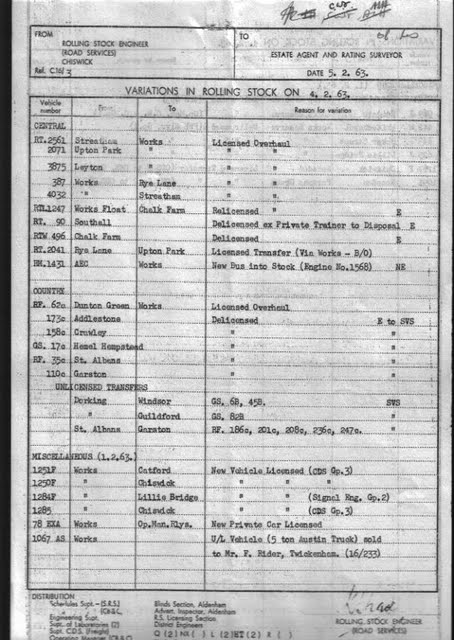 FROM
ROLLING STOCK ENGINEER
(ROAD SERVICES)
CHISWICK
Ref. C16/3
TO
ESTATE AGENT AND RATING SURVEYOR
DATE 5. 2. 63.
VARIATIONS IN ROLLING STOCK ON 4. 2. 63.
Vehicle number From To Reason for variation
CENTRAL
RT.2561 Streatham Works Licensed Overhaul
2071 Upton Park " " "
3875 Leyton " " "
387 Works Rye Lane " "
4032 " Streatham " "
RTL1247 Works Float Chalk Farm Relicensed " E
RT. 90 Southall Delicensed ex Private Trainer to Disposal E
RTW 496 Chalk Farm Delicensed E
RT.2041 Rye Lane Upton Park Licensed Transfer (Via Works - B/O)
RM.1431 AEC Works New Bus into Stock (Engine No.1568) NE
COUNTRY
RF. 62c Dunton Green Works Licensed Overhaul
173c Addlestone Delicensed E to SVS
158c Crawley " "
GS. 17c Hemel Hempstead " "
RF. 35c St. Albans " "
110c Garston " "
UNLICENSED TRANSFERS
Dorking Windsor GS. 6B, 45B. SVS
" Guildford GS. 82B "
St. Albans Garston RF. 186c, 201c, 208c, 236c, 247c. "
MISCELLANEOUS (1.2.63.)
1251F Works Catford New Vehicle Licensed (CDS Gp.3)
1250F " Chiswick " " "
1284F " Lillie Bridge " " (Signal Eng. Gp.2)
1285 " Chiswick " " (CDS Gp.3)
78 EXA Works Op.Man.Rlys. New Private Car Licensed
1067 AS Works U/L Vehicle (5 ton Austin Truck) sold
to Mr. F. Rider, Twickenham. (16/233)
DISTRIBUTION
Schedules Supt. - (S.R.S.)
(CB&C.)
Engineering Supt.
Supt. of Laboratories (2)
Supt. C.D.S. (Freight)
Operating Manager (CB&C)
Blinds Section, Aldenham
Advert. Inspector, Aldenham
R.S. Licensing Section
District Engineers
ROLLING STOCK ENGINEER
(ROAD SERVICES)